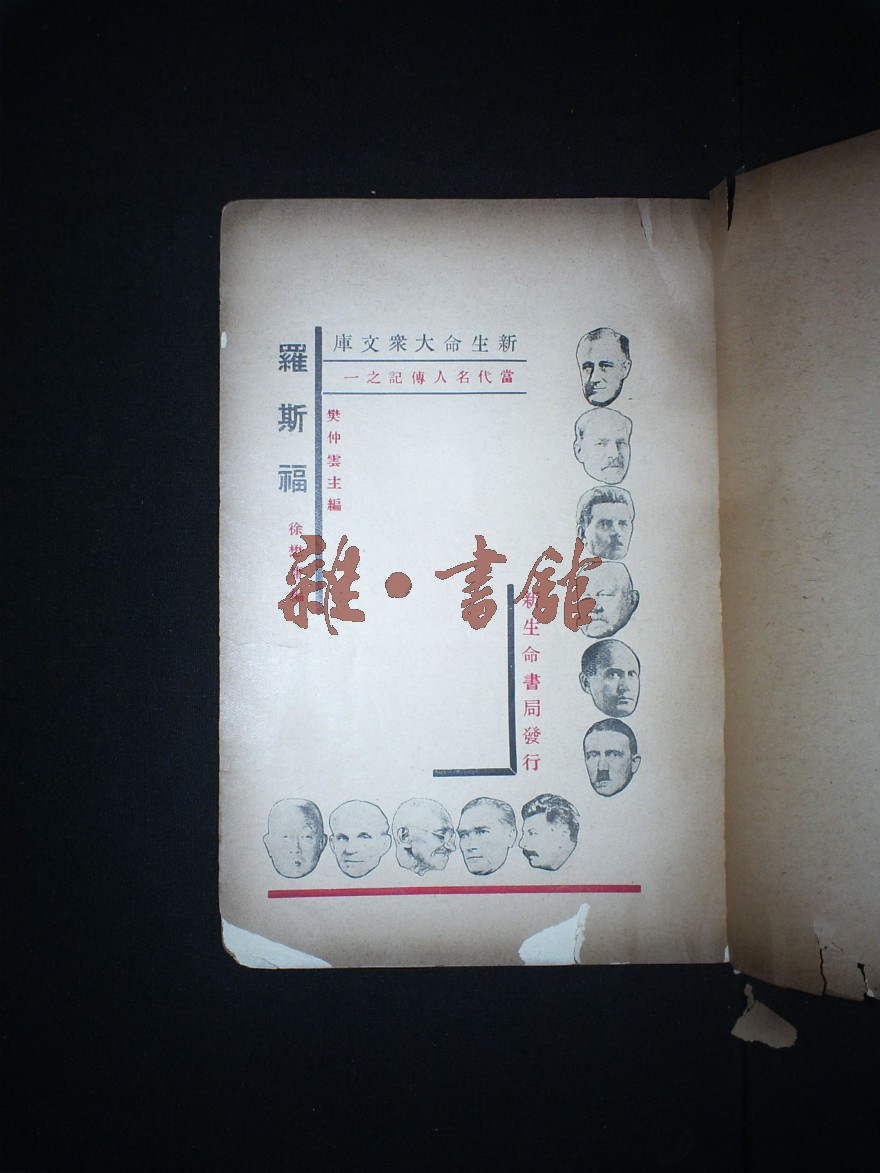 新生命大衆文庫
當代名人傳記之一
樊仲雲主編
羅斯福
徐懋
新生命書局發行
雜·書館